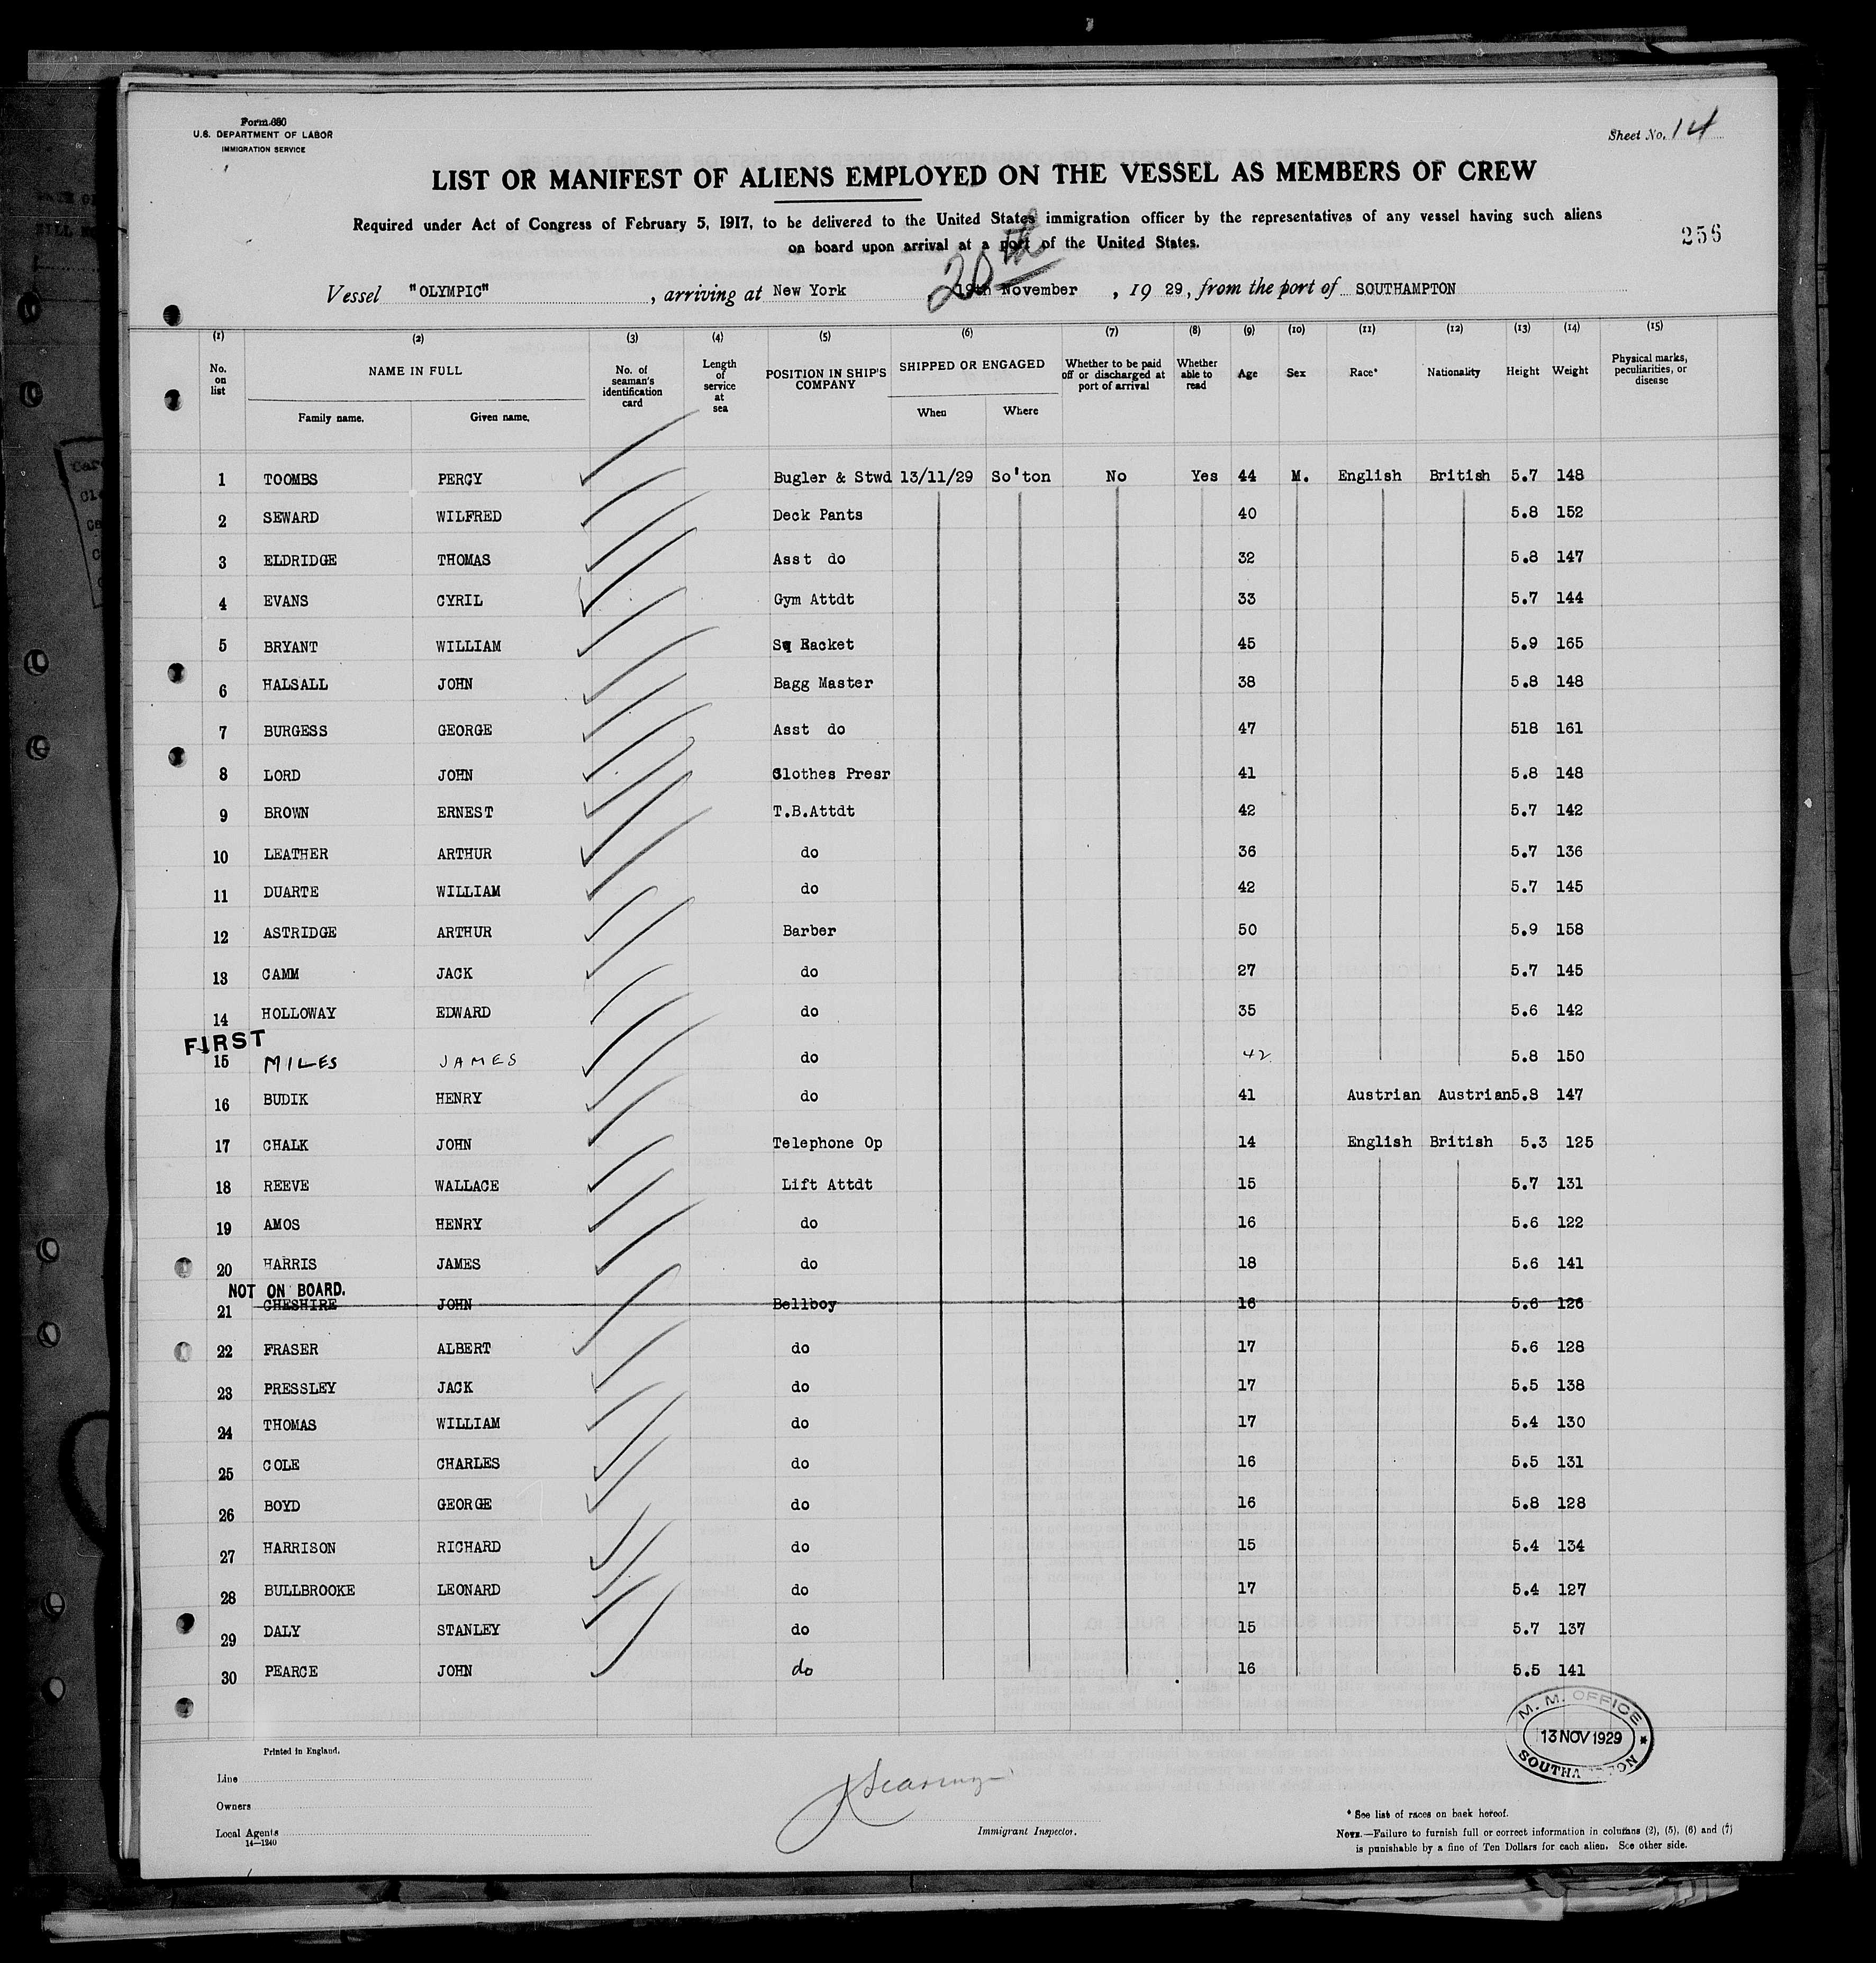 Form 680
U.S. DEPARTMENT OF LABOR
IMMIGRATION SERVICE
Sheet No. 14
LIST OR MANIFEST OF ALIENS EMPLOYED ON THE VESSEL AS MEMBERS OF CREW
Required under Act of Congress of February 5, 1917, to be delivered to the United States immigration officer by the representatives of any vessel having such aliens
on board upon arrival at a port of the United States.
256
20th
Vessel "OLYMPIC", arriving at New York 19th November, 19 29, from the port of SOUTHAMPTON
(1) (2) (3) (4) (5) (6) (7) (8) (9) (10) (11) (12) (13) (14) (15)
No. on list NAME IN FULL Family name. Given name. No. of seaman's identification card Length of service at sea POSITION IN SHIP'S COMPANY SHIPPED OR ENGAGED When Where Whether to be paid off or discharged at port of arrival Whether able to read Age Sex Race* Nationality Height Weight Physical marks, peculiarities, or disease
1 TOOMBS PERCY Bugler & Stwd 13/11/29 So'ton No Yes 44 M. English British 5.7 148
2 SEWARD WILFRED Deck Pants 40 5.8 152
3 ELDRIDGE THOMAS Asst do 32 5.8 147
4 EVANS CYRIL Gym Attdt 33 5.7 144
5 BRYANT WILLIAM Sq Racket 45 5.9 165
6 HALSALL JOHN Bagg Master 38 5.8 148
7 BURGESS GEORGE Asst do 47 518 161
8 LORD JOHN Clothes Presr 41 5.8 148
9 BROWN ERNEST T.B.Attdt 42 5.7 142
10 LEATHER ARTHUR do 36 5.7 136
11 DUARTE WILLIAM do 42 5.7 145
12 ASTRIDGE ARTHUR Barber 50 5.9 158
13 CAMM JACK do 27 5.7 145
14 HOLLOWAY EDWARD do 35 5.6 142
FIRST
15 MILES JAMES do 42. 5.8 150
16 BUDIK HENRY do 41 Austrian Austrian 5.8 147
17 CHALK JOHN Telephone Op 14 English British 5.3 125
18 REEVE WALLACE Lift Attdt 15 5.7 131
19 AMOS HENRY do 16 5.6 122
20 HARRIS JAMES do 18 5.6 141
NOT ON BOARD.
21 CHESHIRE JOHN Bellboy 16 5.6 126
22 FRASER ALBERT do 17 5.6 128
23 PRESSLEY JACK do 17 5.5 138
24 THOMAS WILLIAM do 17 5.4 130
25 COLE CHARLES do 16 5.5 131
26 BOYD GEORGE do 16 5.8 128
27 HARRISON RICHARD do 15 5.4 134
28 BULLBROOKE LEONARD do 17 5.4 127
29 DALY STANLEY do 15 5.7 137
30 PEARCE JOHN do 16 5.5 141
M. M. OFFICE
13 NOV 1929
Printed in England.
Line
Owners
Local Agents
14—1240
Immigrant Inspector.
* See list of races on back hereof.
NOTE.—Failure to furnish full or correct information in columns (2), (5), (6) and (7)
is punishable by a fine of Ten Dollars for each alien. See other side.